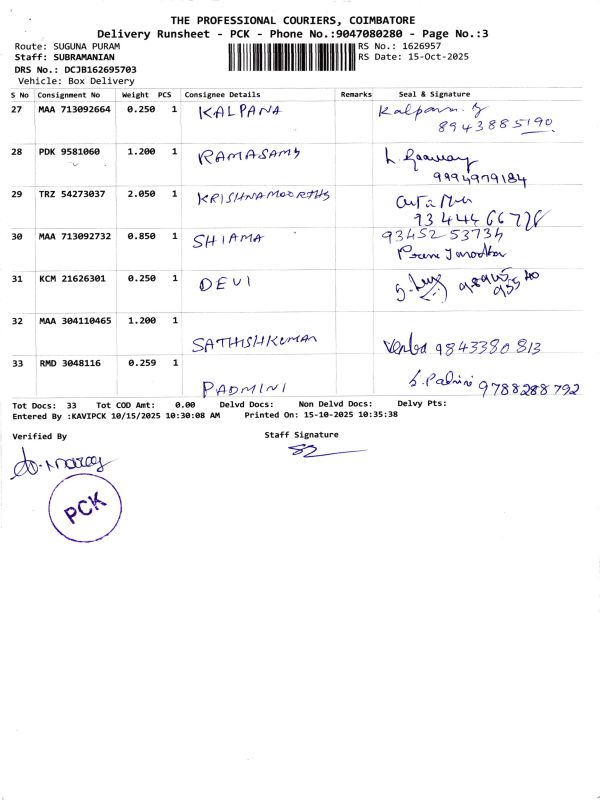 THE PROFESSIONAL COURIERS, COIMBATORE
Delivery Runsheet - PCK - Phone No.:9047080280 - Page No.:3
Route: SUGUNA PURAM RS No.: 1626957
Staff: SUBRAMANIAN RS Date: 15-Oct-2025
DRS No.: DCJB162695703
Vehicle: Box Delivery
S No Consignment No Weight PCS Consignee Details Remarks Seal & Signature
27 MAA 713092664 0.250 1 KALPANA Kalpana. g
8943885190
28 PDK 9581060 1.200 1 RAMASAMY
9994979184
29 TRZ 54273037 2.050 1 KRISHNAMOORTHY
93444 66728
30 MAA 713092732 0.850 1 SHIAMA 93452 53734
31 KCM 21626301 0.250 1 DEVI
32 MAA 304110465 1.200 1
SATHISHKUMAR 9843380 813
33 RMD 3048116 0.259 1
PADMINI S. Padmini 9788288792
Tot Docs: 33 Tot COD Amt: 0.00 Delvd Docs: Non Delvd Docs: Delvy Pts:
Entered By :KAVIPCK 10/15/2025 10:30:08 AM Printed On: 15-10-2025 10:35:38
Verified By Staff Signature
PCK